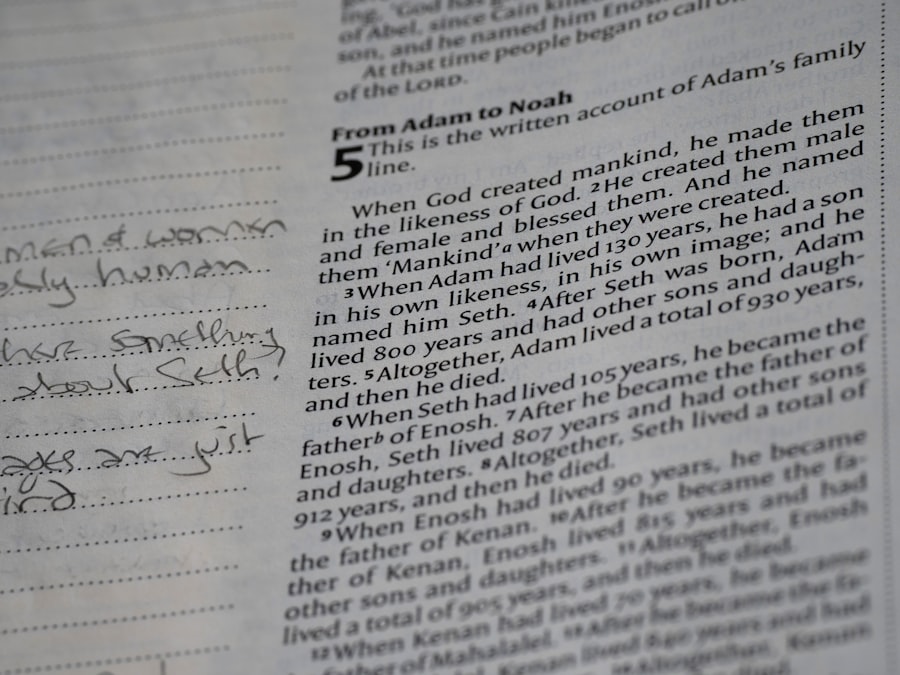 ing, 'God has
of Abel, since Cain killed
son, and he named him Enosh
At that time people began to call on
of the LORD.
From Adam to Noah
5 This is the written account of Adam's family
line.
When God created mankind, he made them
in the likeness of God. 2 He created them male
and female and blessed them. And he named
them 'Mankind'a when they were created.
3 When Adam had lived 130 years, he had a son
in his own likeness, in his own image; and he
named him Seth. 4 After Seth was born, Adam
lived 800 years and had other sons and daugh-
ters. 5 Altogether, Adam lived a total of 930 years,
and then he died.
6 When Seth had lived 105 years, he became the
father b of Enosh. 7 After he became the father of
Enosh, Seth lived 807 years and had other sons
and daughters. 8 Altogether, Seth lived a total of
912 years, and then he died.
9 When Enosh had lived 90 years, he became
the father of Kenan. 10 After he became the fa-
ther of Kenan, Enosh lived 815 years and had
other sons and daughters. 11 Altogether, Enosh
lived a total of 905 years, and then he died.
12 When Kenan had lived 70 years, he became
father of Mahalalel. 13 After he became the fa-
Kenan lived 840 years and had
Altogether, Kenan
men & women
human
something
about Seth?
ages are just